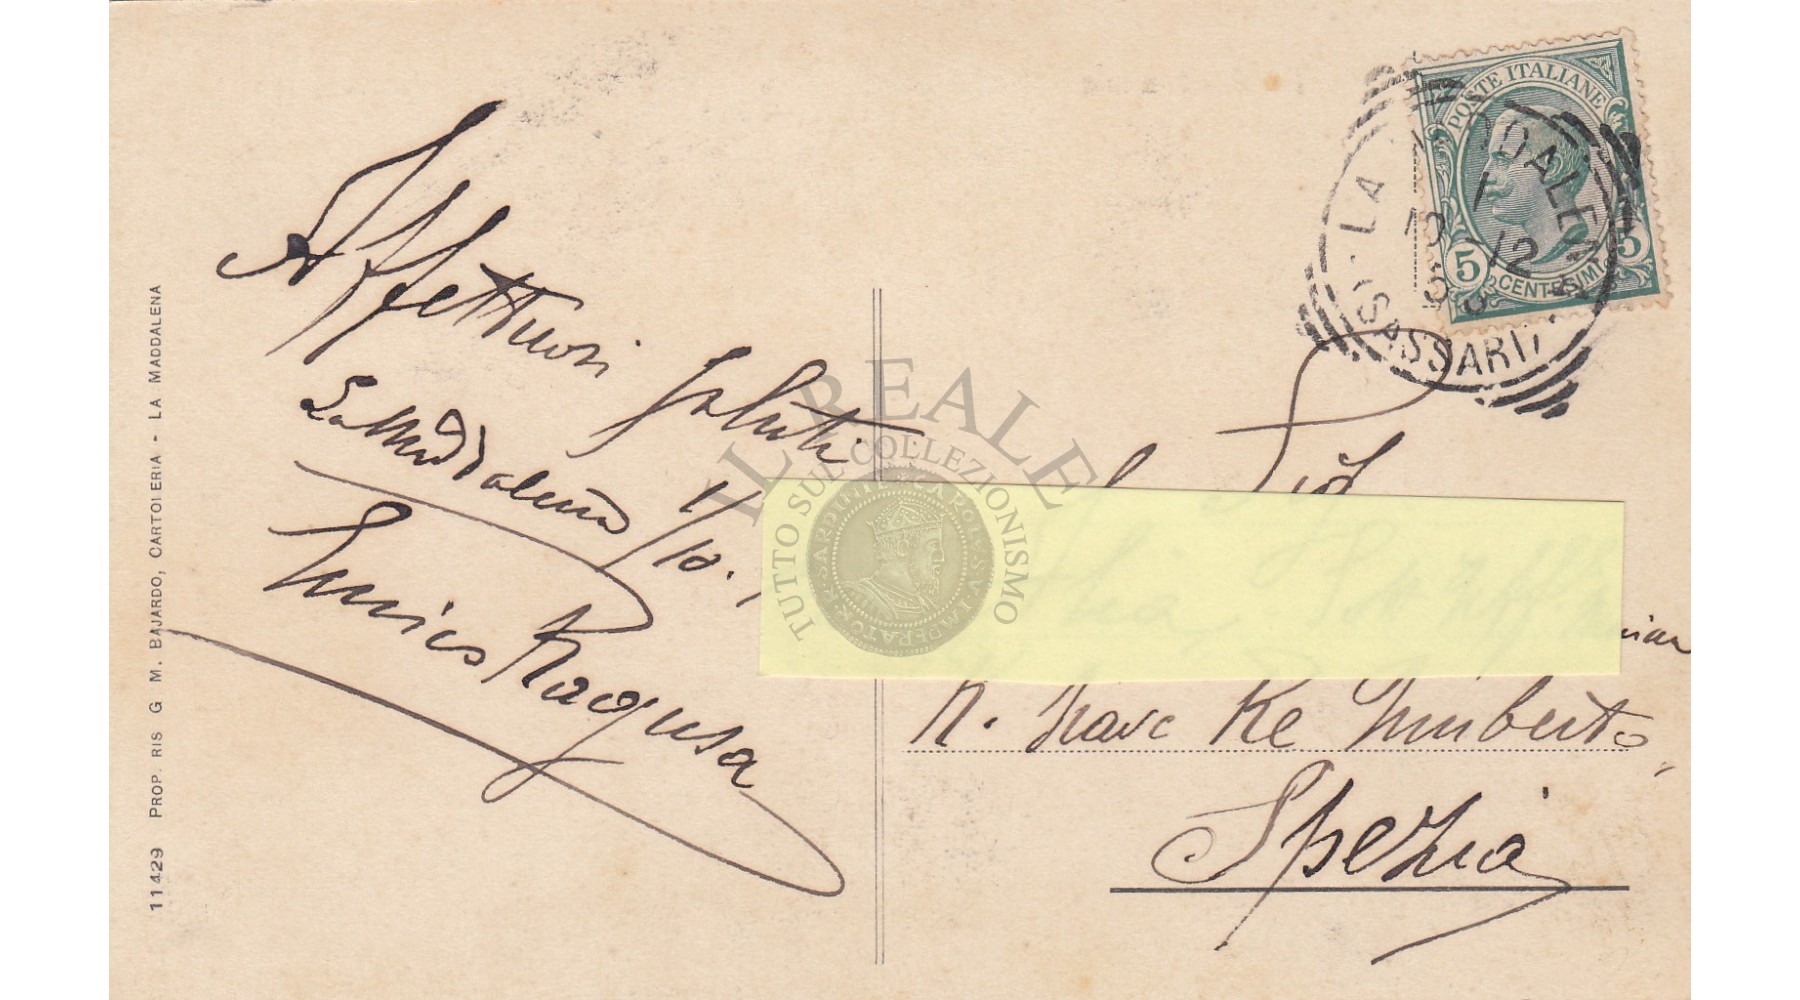 11429 PROP. RIS G M. BAJARDO, CARTOLERIA - LA MADDALENA
Affettuosi saluti
La Maddalena 1/10.
Enrico Ragusa
POSTE ITALIANE
5 CENTESIMI 5
LA MADDALENA
1
10 12
(SASSARI)
IL REALE
TUTTO SUL COLLEZIONISMO
R. Nave Re Umberto
Spezia